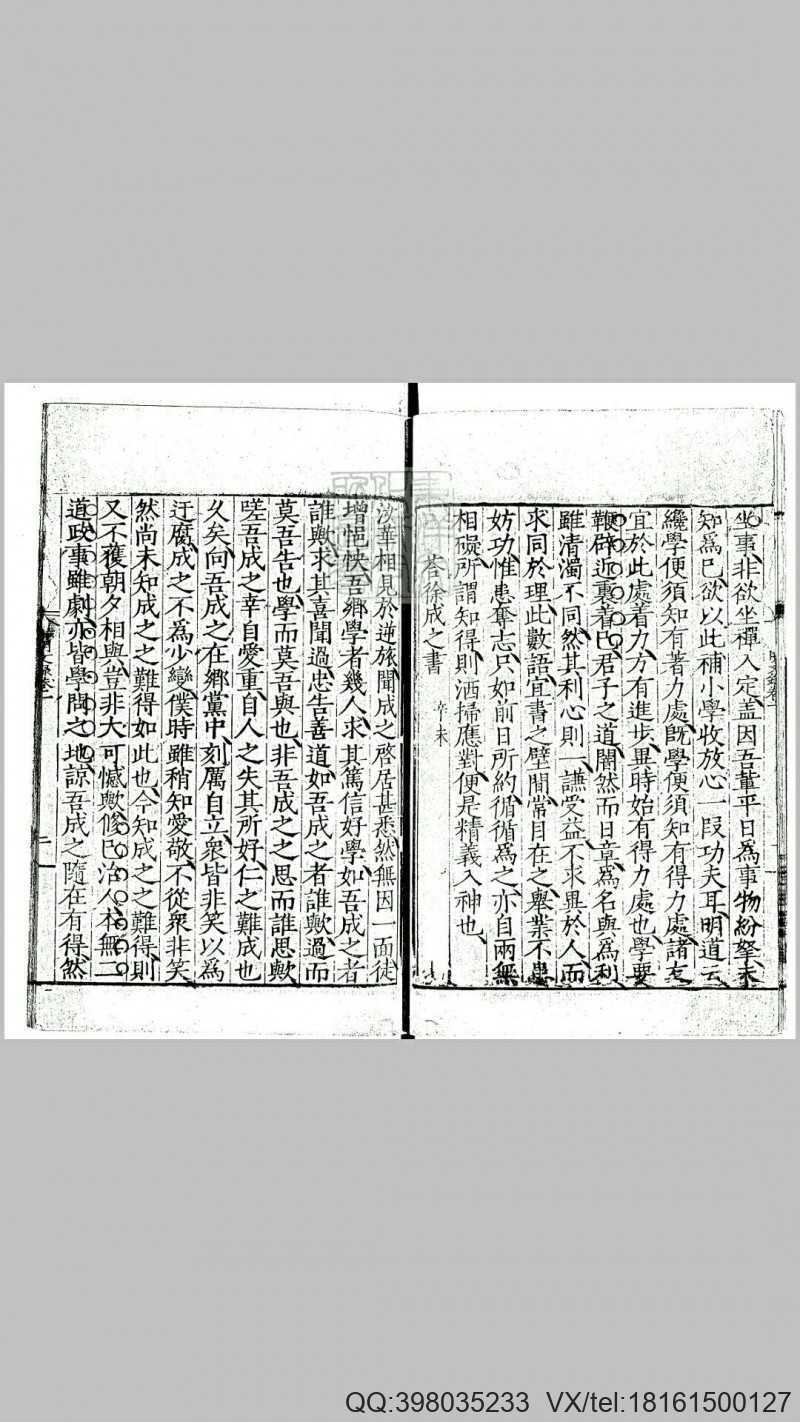 坐事非欲坐禪入定蓋因吾輩平日爲事物紛拏未
知爲已欲以此補小學收放心一叚功夫耳明道云
纔學便須知有著力處旣學便須知有得力處諸友
宜於此處着力方有進步異時始有得力處也學要
鞭辟近裏着已君子之道闇然而日章爲名與爲利
雖清濁不同然其利心則一謙受益不求異於人而
求同於理此數語宜書之壁間常目在之舉業不患
妨功惟患奪志只如前日所約循循爲之亦自兩無
相礙所謂知得則洒掃應對便是精義入神也
荅徐成之書 辛未
汝華相見於逆旅聞成之啓居甚悉然無因一面徒
增悒怏吾鄉學者幾人求其篤信好學如吾成之者
誰歟求其喜聞過忠告善道如吾成之者誰歟過而
莫吾告也學而莫吾與也非吾成之之思而誰思歟
嗟吾成之幸自愛重自人之失其所好仁之難成也
久矣向吾成之在鄉黨中刻厲自立衆皆非笑以爲
迂腐成之不爲少變僕時雖稍知愛敬不從衆非笑
然尚未知成之之難得如此也今知成之之難得則
又不獲朝夕相與豈非大可憾歟修已治人本無二
道政事雖劇亦皆學問之地諒吾成之隨在有得然
QQ:398035233 VX/tel:18161500127